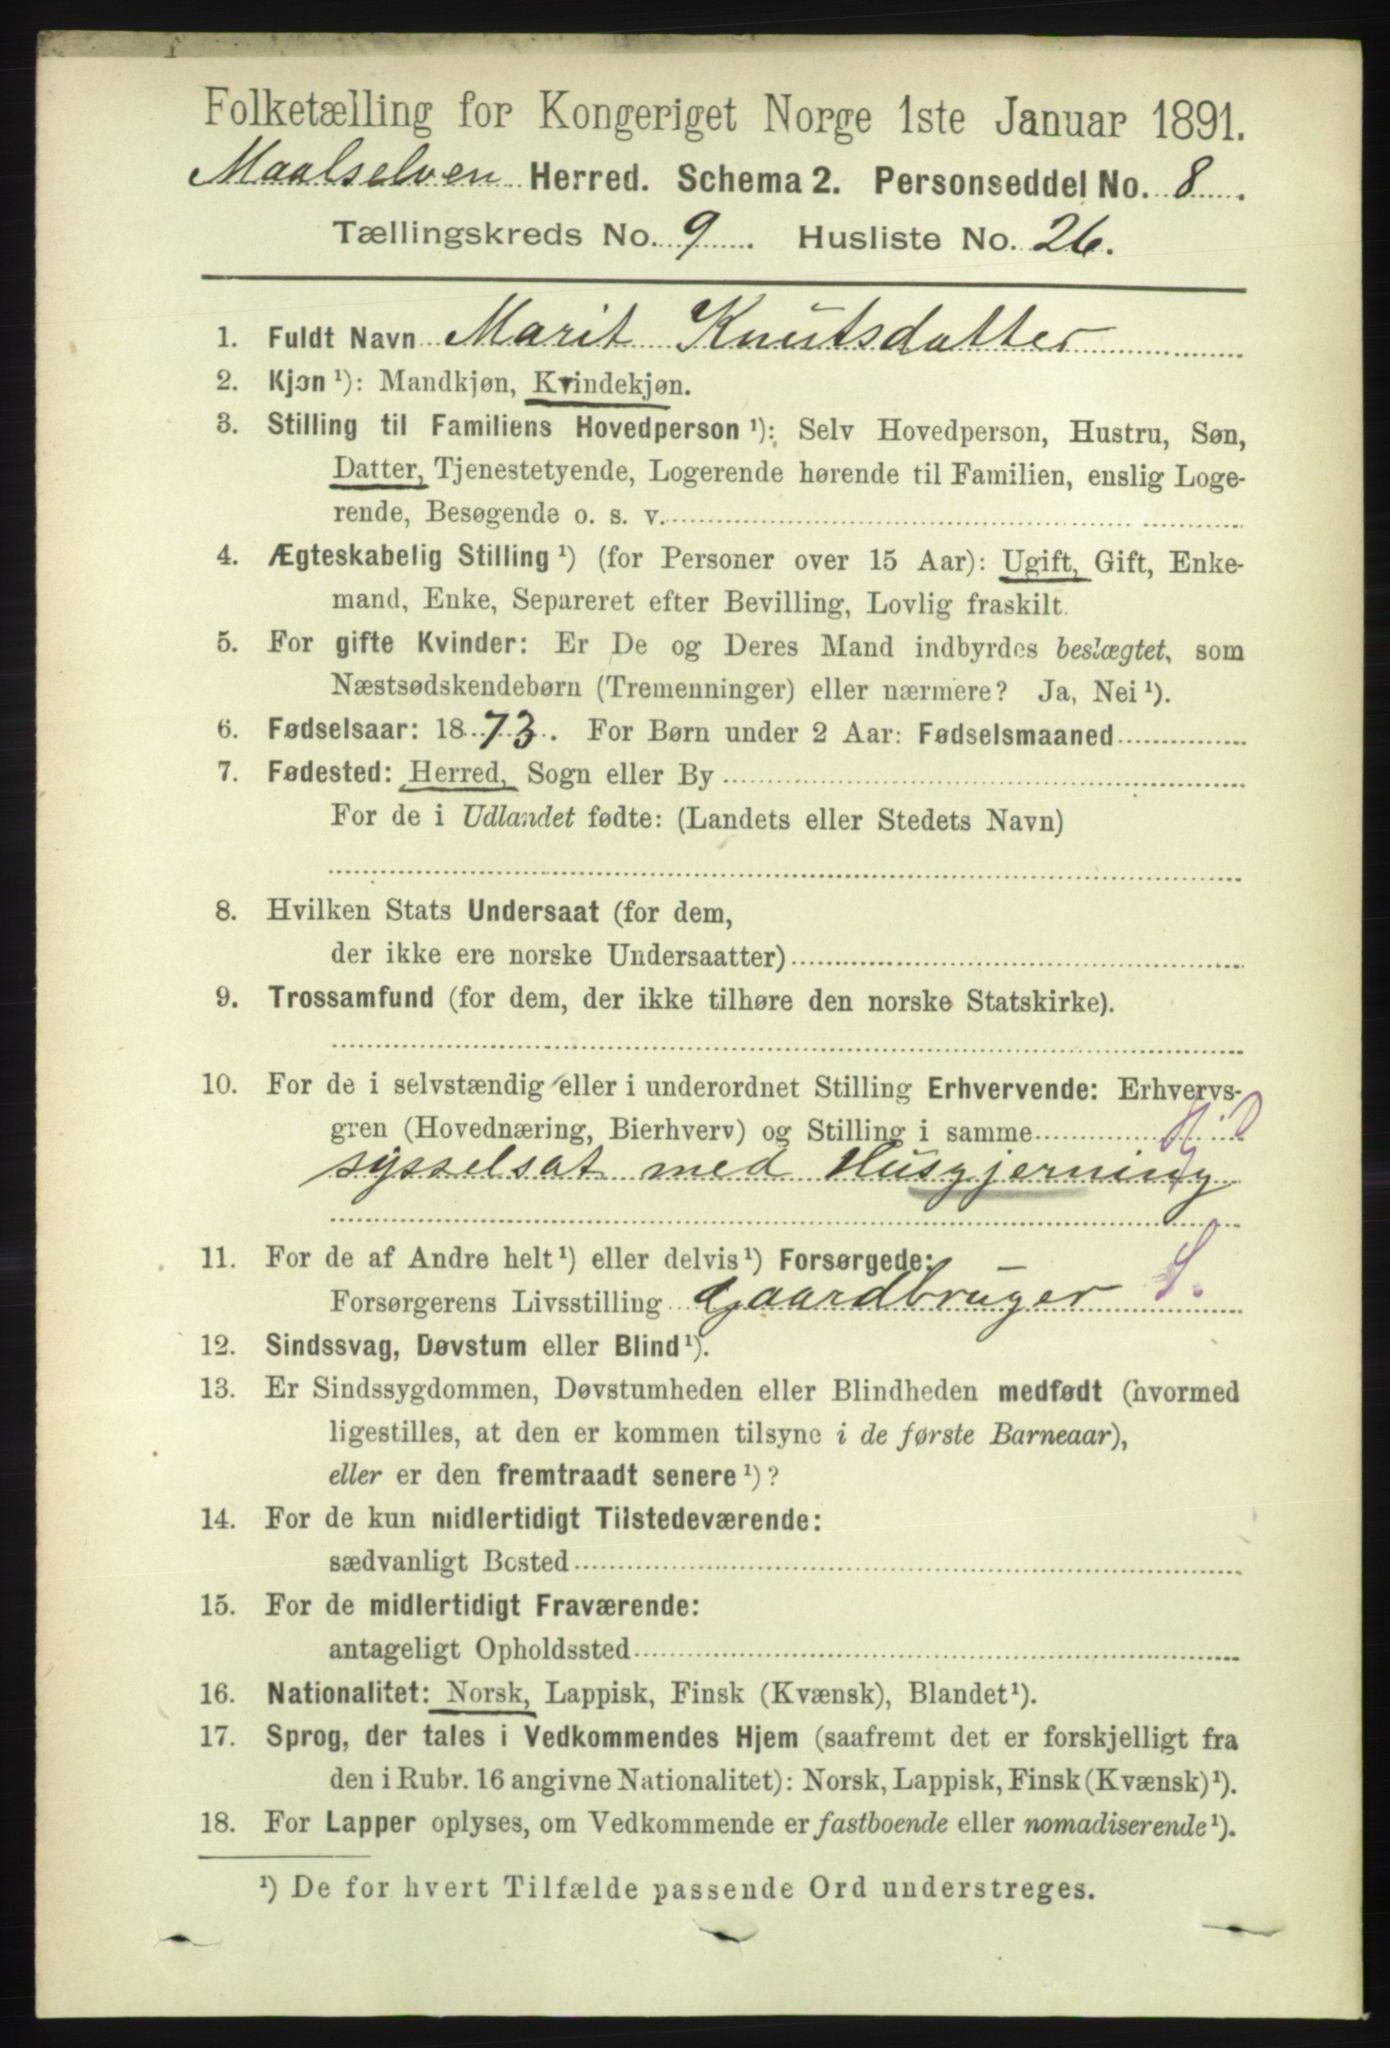 Folketælling for Kongeriget Norge 1ste Januar 1891.
Maalselven Herred. Schema 2. Personseddel No. 8
Tællingskreds No. 9. Husliste No. 26.
1. Fuldt Navn Marit Knutsdatter
2. Kjøn ¹): Mandkjøn, Kvindekjøn.
3. Stilling til Familiens Hovedperson ¹): Selv Hovedperson, Hustru, Søn,
Datter, Tjenestetyende, Logerende hørende til Familien, enslig Loge-
rende, Besøgende o. s. v.
4. Ægteskabelig Stilling ¹) (for Personer over 15 Aar): Ugift, Gift, Enke-
mand, Enke, Separeret efter Bevilling, Lovlig fraskilt.
5. For gifte Kvinder: Er De og Deres Mand indbyrdes beslægtet, som
Næstsødskendebørn (Tremenninger) eller nærmere? Ja, Nei ¹).
6. Fødselsaar: 1873. For Børn under 2 Aar: Fødselsmaaned
7. Fødested: Herred, Sogn eller By
For de i Udlandet fødte: (Landets eller Stedets Navn)
8. Hvilken Stats Undersaat (for dem,
der ikke ere norske Undersaatter)
9. Trossamfund (for dem, der ikke tilhøre den norske Statskirke).
10. For de i selvstændig eller i underordnet Stilling Erhvervende: Erhvervs-
gren (Hovednæring, Bierhverv) og Stilling i samme
sysselsat med Husgjerning
11. For de af Andre helt ¹) eller delvis ¹) Forsørgede:
Forsørgerens Livsstilling Gaardbruger S.
12. Sindssvag, Døvstum eller Blind ¹).
13. Er Sindssygdommen, Døvstumheden eller Blindheden medfødt (hvormed
ligestilles, at den er kommen tilsyne i de første Barneaar),
eller er den fremtraadt senere ¹)?
14. For de kun midlertidigt Tilstedeværende:
sædvanligt Bosted
15. For de midlertidigt Fraværende:
antageligt Opholdssted
16. Nationalitet: Norsk, Lappisk, Finsk (Kvænsk), Blandet ¹).
17. Sprog, der tales i Vedkommendes Hjem (saafremt det er forskjelligt fra
den i Rubr. 16 angivne Nationalitet): Norsk, Lappisk, Finsk (Kvænsk) ¹).
18. For Lapper oplyses, om Vedkommende er fastboende eller nomadiserende ¹).
¹) De for hvert Tilfælde passende Ord understreges.